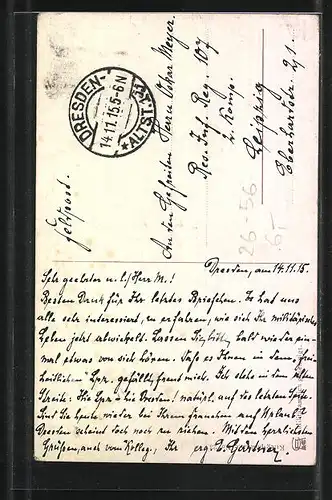 DRESDEN-
14.11.15.5-6N
* ALTST. 24
Feldpost.
An den Gefreiten Herrn Oskar Meyer.
Res. Inf. Reg. 107
2. Komp.
Leipzig
Eberhardstr. 21.
26-56
6,-
Dresden, am 14.11.15.
Sehr geehrter u. l. Herr M.!
Besten Dank für Ihr letztes Briefchen. Es hat uns
alle sehr interessiert, zu erfahren, wie sich Ihr militärisches
Leben jetzt abwickelt. Lassen Sie bald wieder ein-
mal etwas von sich hören. Daß es Ihnen in dem
gefällt, freut mich. Ich stehe in dem selben
Dresden! natürl. auf das letzten
Sind Sie heute wieder bei Ihrem auf Urlaub?
Dresden scheint doch noch zu ziehen. Mit den herzlichsten
Grüßen, auch vom Kolleg., Ihr erg.